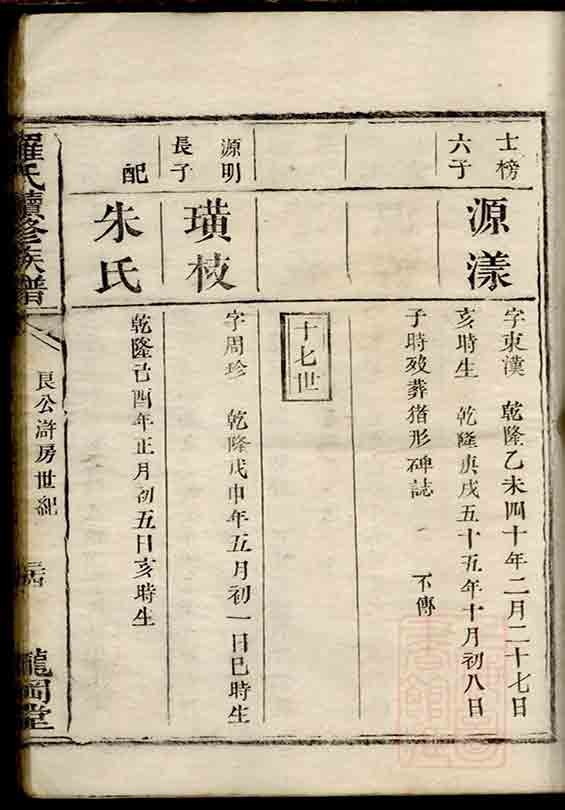 士榜
六子
源漾
字東漢 乾隆乙未四十年二月二十七日
亥時生 乾隆庚戌五十五年十月初八日
子時歿葬猪形碑誌 不傳
十七世
源明
長子
璜枝
字周珍 乾隆戊申年五月初一日巳時生
配
朱氏
乾隆己酉年正月初五日亥時生
羅氏續修族譜
良公滸房世紀
龍岡堂